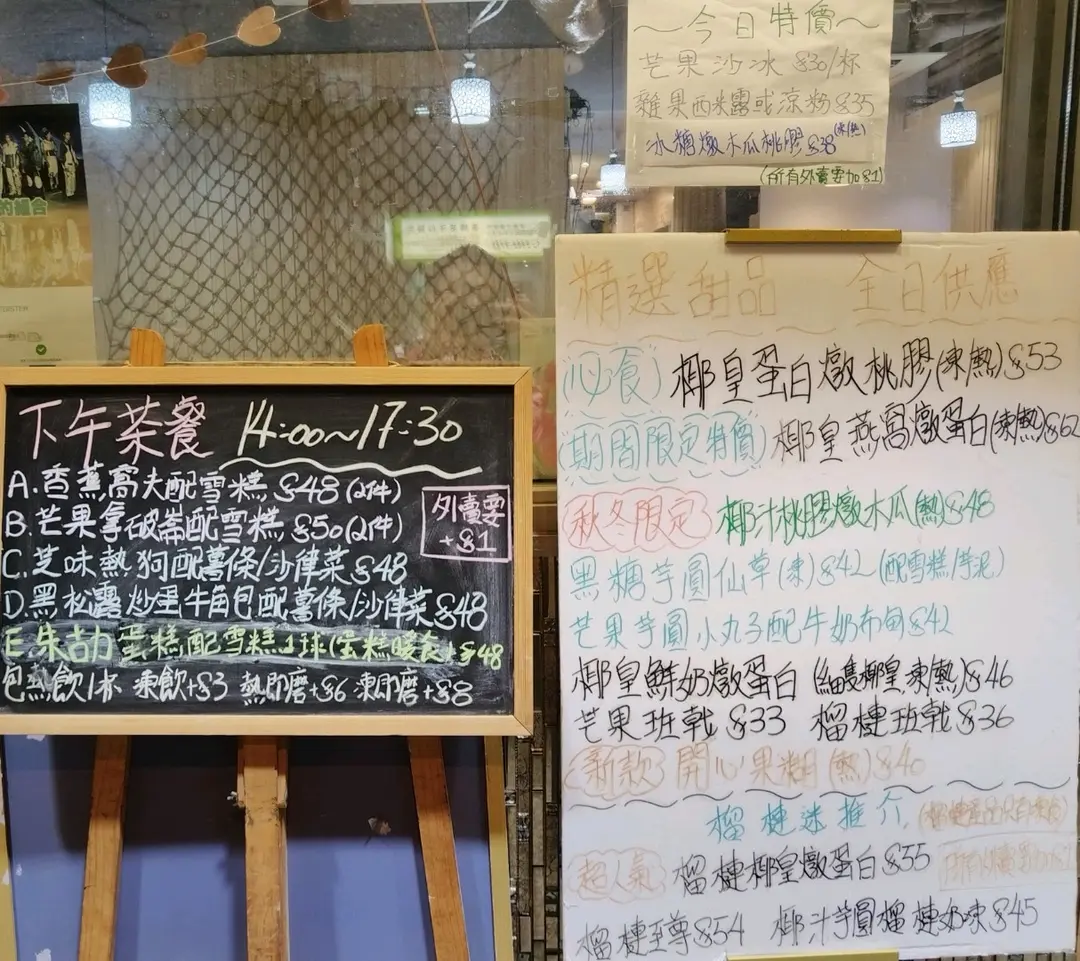 ～今日特價～
芒果沙冰 $30/杯
雜果西米露或涼粉 $35
冰糖燉木瓜桃膠 $38(凍/熱)
(所有外賣要加$1)
的組合
下午茶餐 14:00~17:30
A.香蕉窩夫配雪糕 $48(2件)
B.芒果拿破崙配雪糕 $50(2件)
外賣要
+$1
C.芝味熱狗配薯條/沙律菜 $48
D.黑松露炒蛋牛角包配薯條/沙律菜 $48
E.朱古力蛋糕配雪糕1球(蛋糕暖食) $48
包熱飲1杯 凍飲+$3 熱即磨+$6 凍即磨+$8
精選甜品 全日供應
(必食) 椰皇蛋白燉桃膠(凍/熱) $53
(期間限定特價) 椰皇燕窩燉蛋白(凍/熱) $62
(秋冬限定) 椰汁桃膠燉木瓜(熱) $48
黑糖芋圓仙草(凍) $42~(配雪糕/芋泥)
芒果芋圓小丸子配牛奶布甸 $42
椰皇鮮奶燉蛋白 (細隻椰皇,凍/熱) $46
芒果班戟 $33 榴槤班戟 $36
(新款) 開心果糊(熱) $40
榴槤迷推介
超人氣 榴槤椰皇燉蛋白 $55
榴槤至尊 $54 椰汁芋圓榴槤奶凍 $45